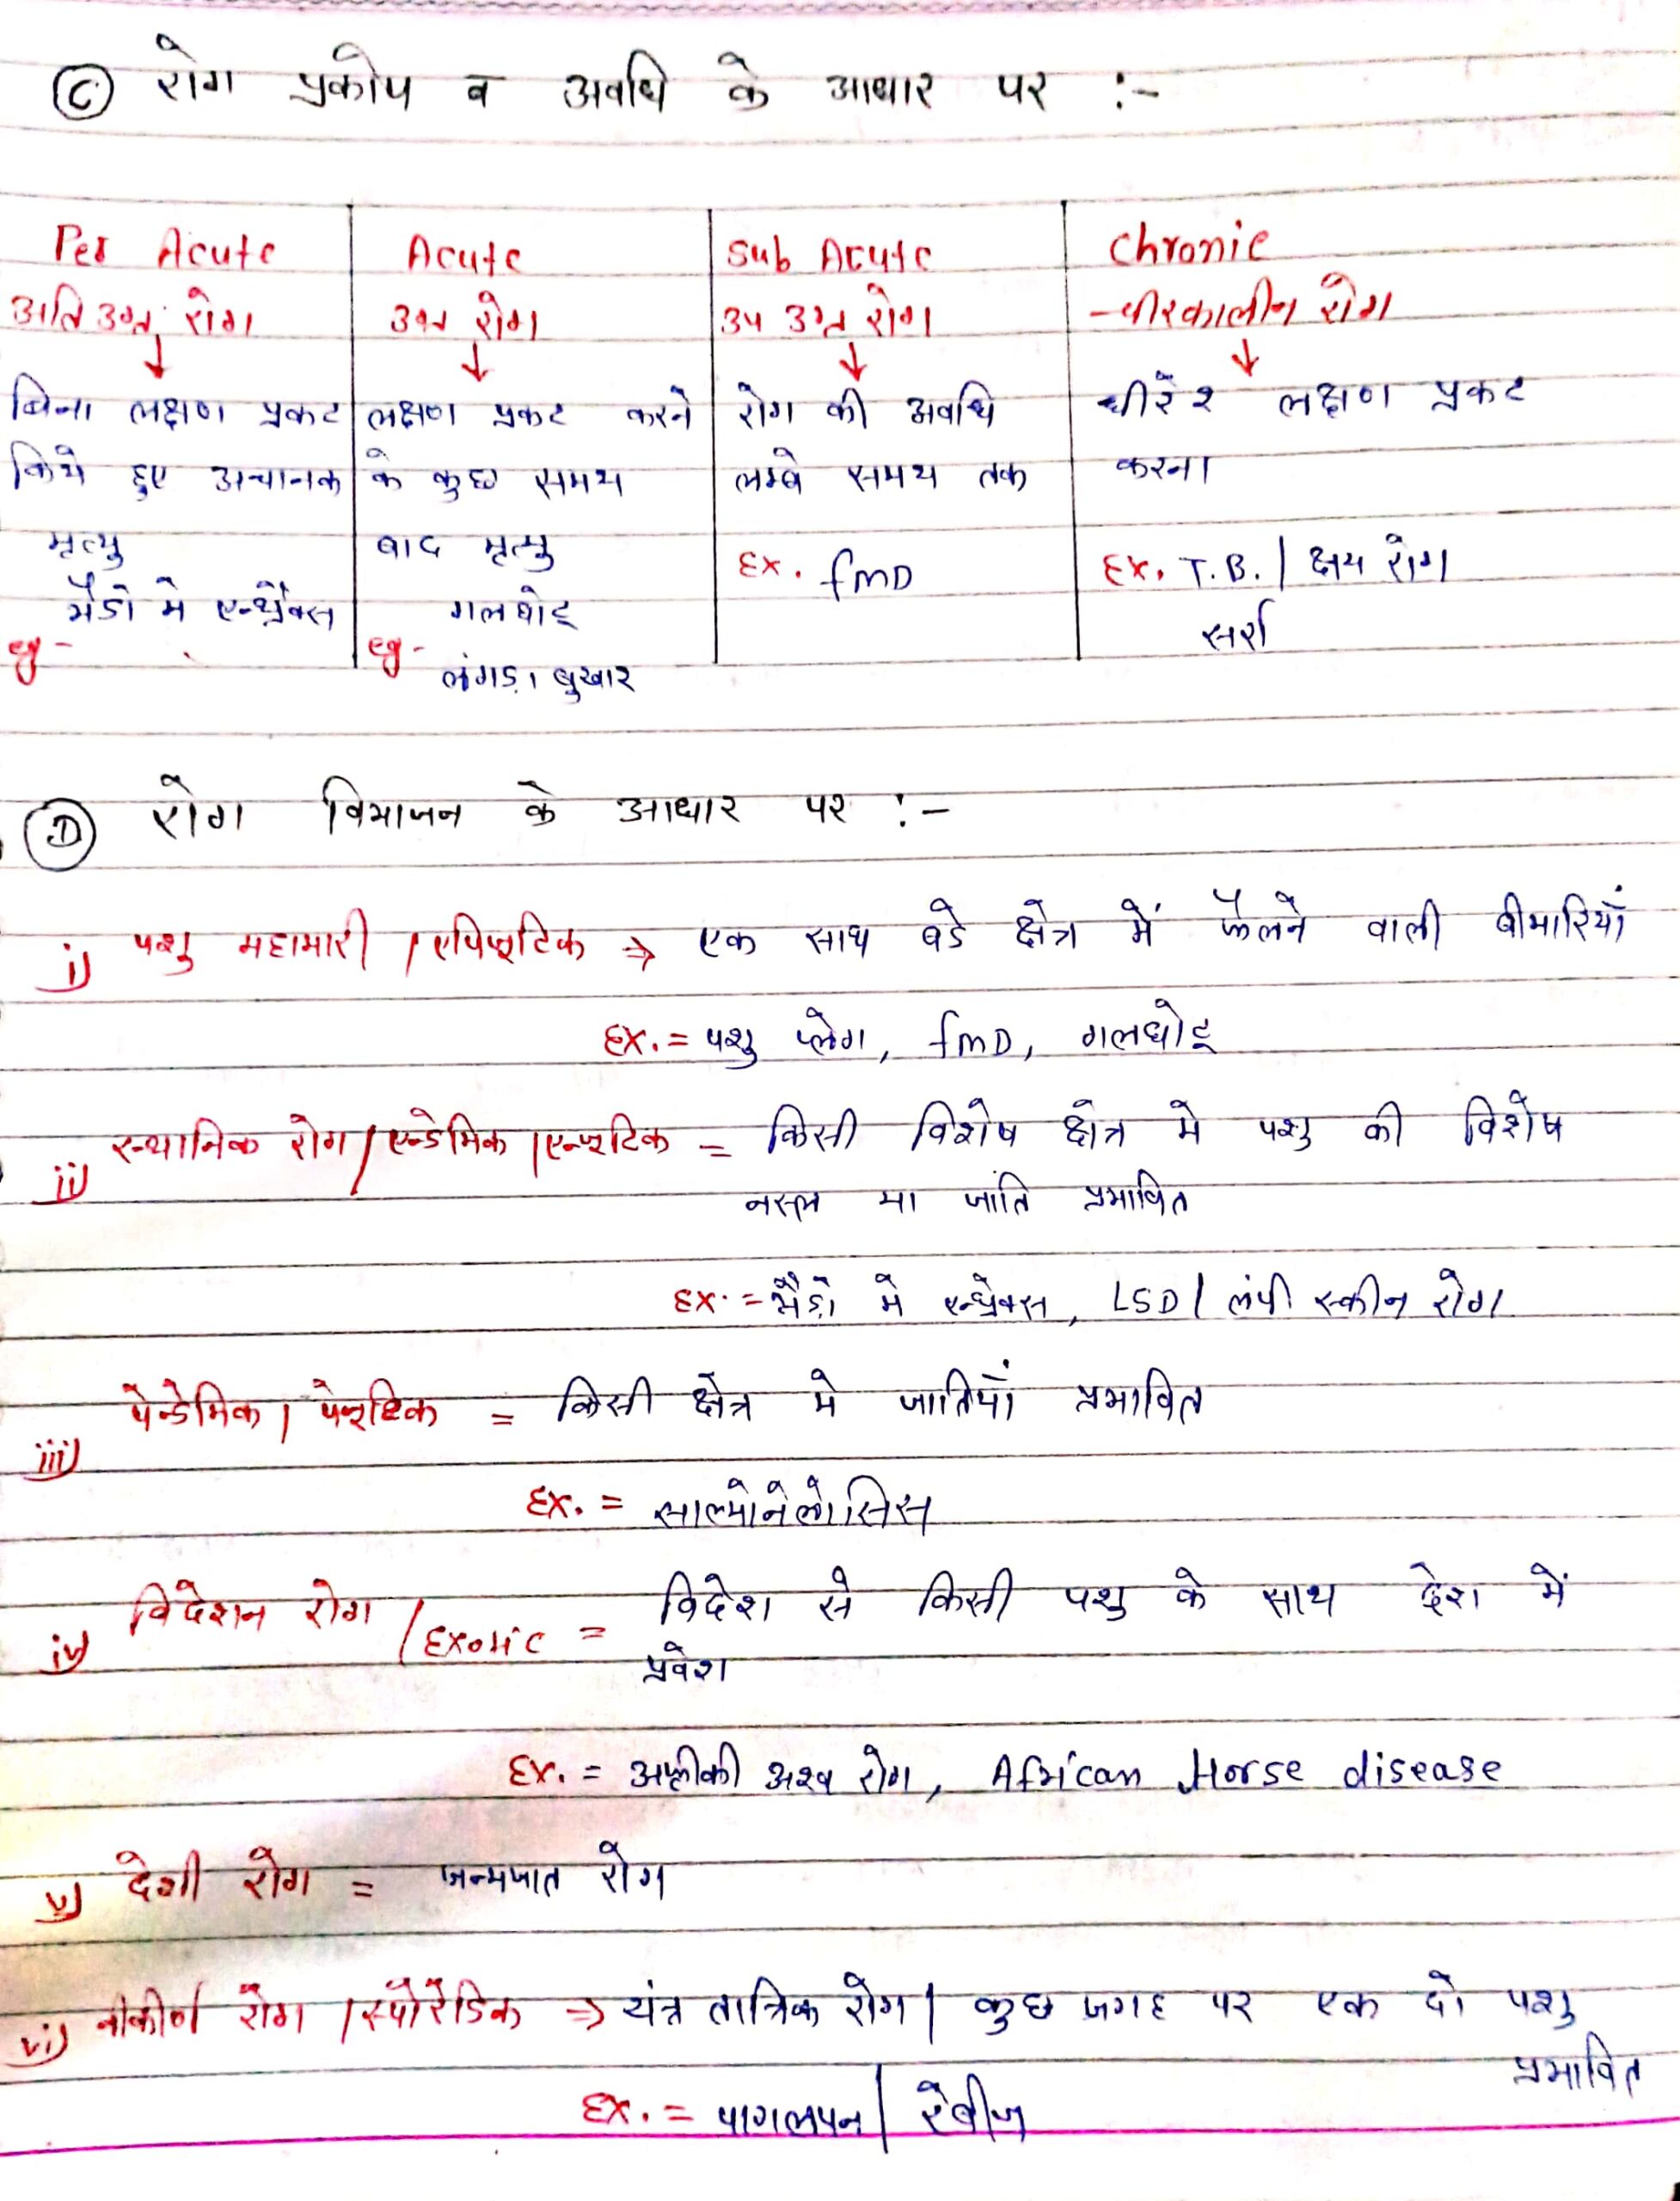 C रोग प्रकोप व अवधि के आधार पर :-
Per Acute
अति उग्र रोग
↓
बिना लक्षण प्रकट
किये हुए अचानक
मृत्यु
eg - भैडो मे एन्थ्रैक्स
Acute
उग्र रोग
↓
लक्षण प्रकट करने
के कुछ समय
बाद मृत्यु
eg - गलघोटू
लंगड़ा बुखार
Sub Acute
उप उग्र रोग
↓
रोग की अवधि
लम्बे समय तक
Ex. fMD
Chronic
-चीरकालीन रोग
↓
धीरे २ लक्षण प्रकट
करना
Ex. T.B. / क्षय रोग
सर्रा
D रोग विभाजन के आधार पर :-
i) पशु महामारी / एपिजूटिक ⇒ एक साथ बडे क्षेत्र में फैलने वाली बीमारियाँ
Ex. = पशु प्लेग, fMD, गलघोटू
ii) स्थानिक रोग / एन्डेमिक / एन्जूटिक = किसी विशेष क्षेत्र मे पशु की विशेष
नस्ल या जाति प्रभावित
Ex. = भैडो मे एन्थ्रेक्स, LSD / लंपी स्कीन रोग
iii) पेन्डेमिक / पेन्जूटिक = किसी क्षेत्र मे जातियाँ प्रभावित
Ex. = साल्मोनेलोसिस
iv) विदेशज रोग / Exotic = विदेश से किसी पशु के साथ देश में
प्रवेश
Ex. = अफ्रीकी अश्व रोग, African Horse disease
v) देशी रोग = जन्मजात रोग
vi) वीकीर्ण रोग / स्पोरेडिक ⇒ यंत्र तात्रिक रोग / कुछ जगह पर एक दो पशु
प्रभावित
Ex. = पागलपन / रेबीज